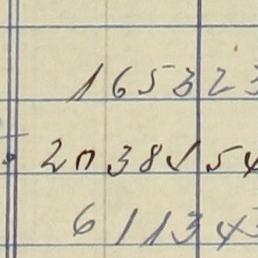 165323
2n38154
611343